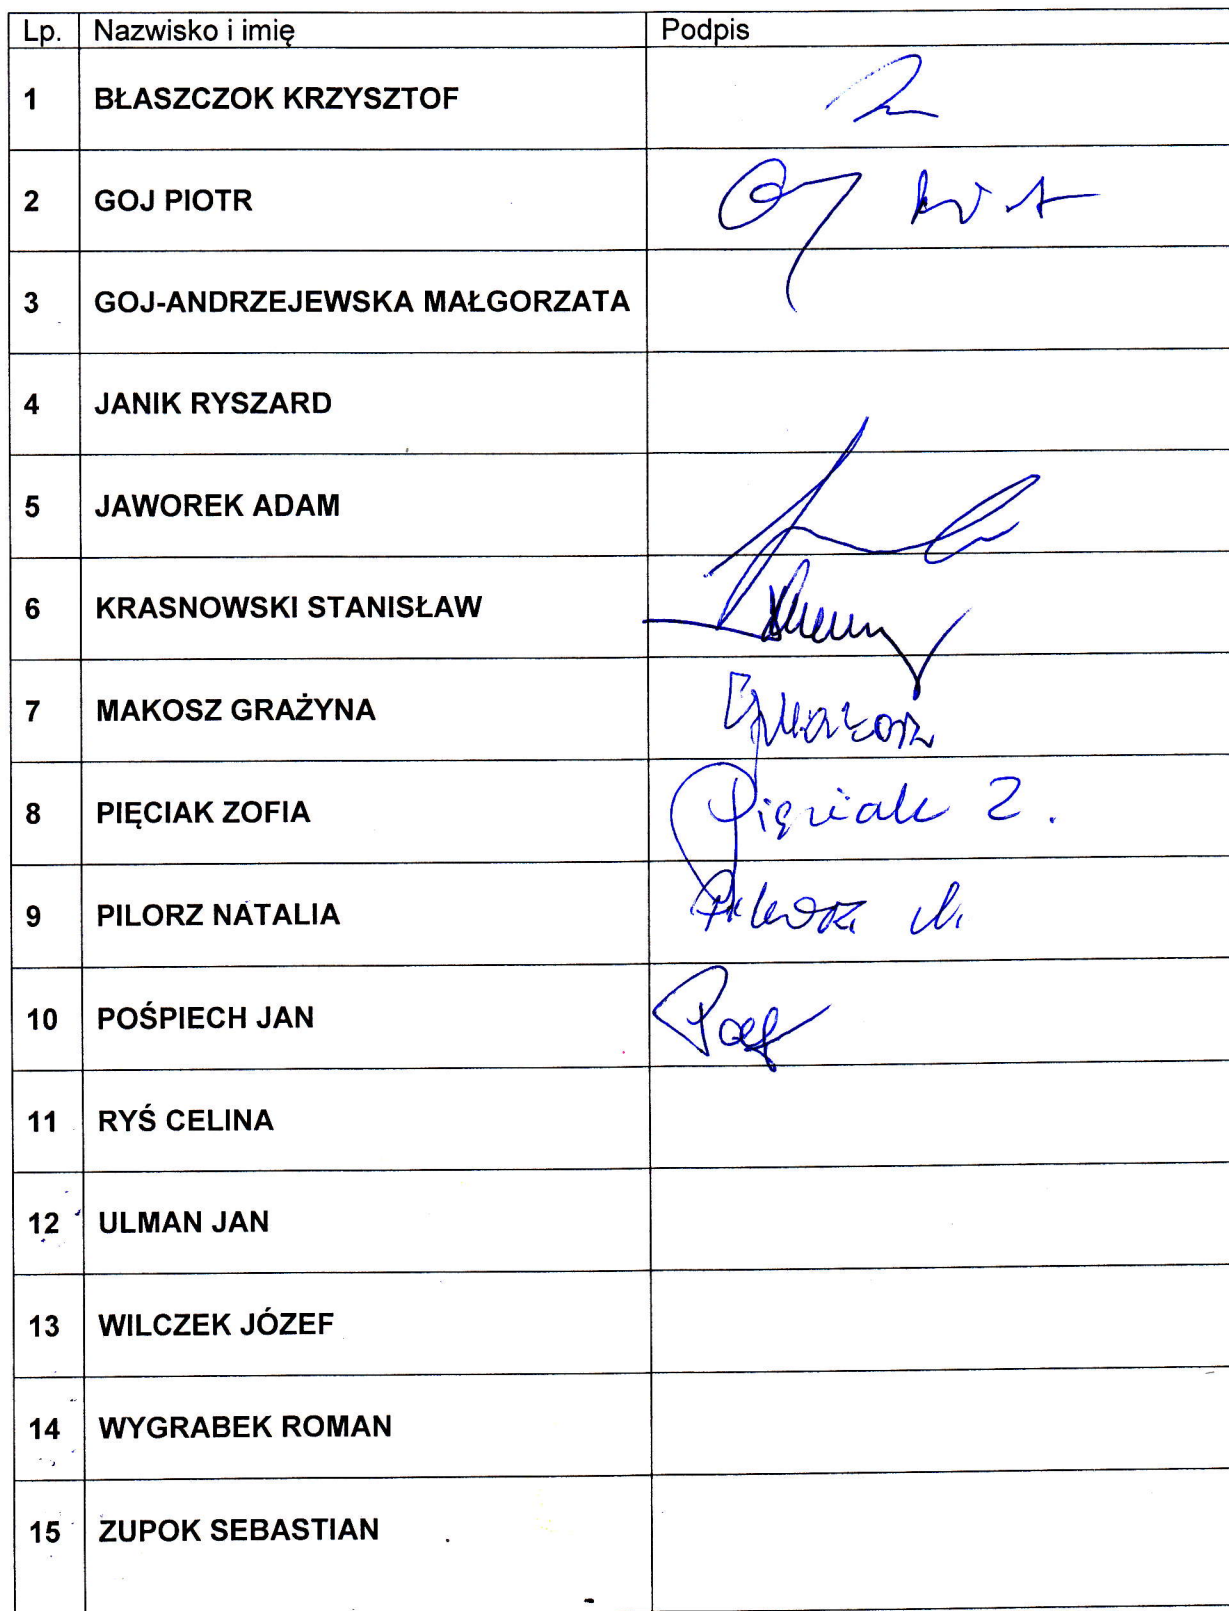 Lp. Nazwisko i imię Podpis
1 BŁASZCZOK KRZYSZTOF
2 GOJ PIOTR
3 GOJ-ANDRZEJEWSKA MAŁGORZATA
4 JANIK RYSZARD
5 JAWOREK ADAM
6 KRASNOWSKI STANISŁAW
7 MAKOSZ GRAŻYNA
8 PIĘCIAK ZOFIA Pięciak Z.
9 PILORZ NATALIA Pilorz N.
10 POŚPIECH JAN
11 RYŚ CELINA
12 ULMAN JAN
13 WILCZEK JÓZEF
14 WYGRABEK ROMAN
15 ZUPOK SEBASTIAN